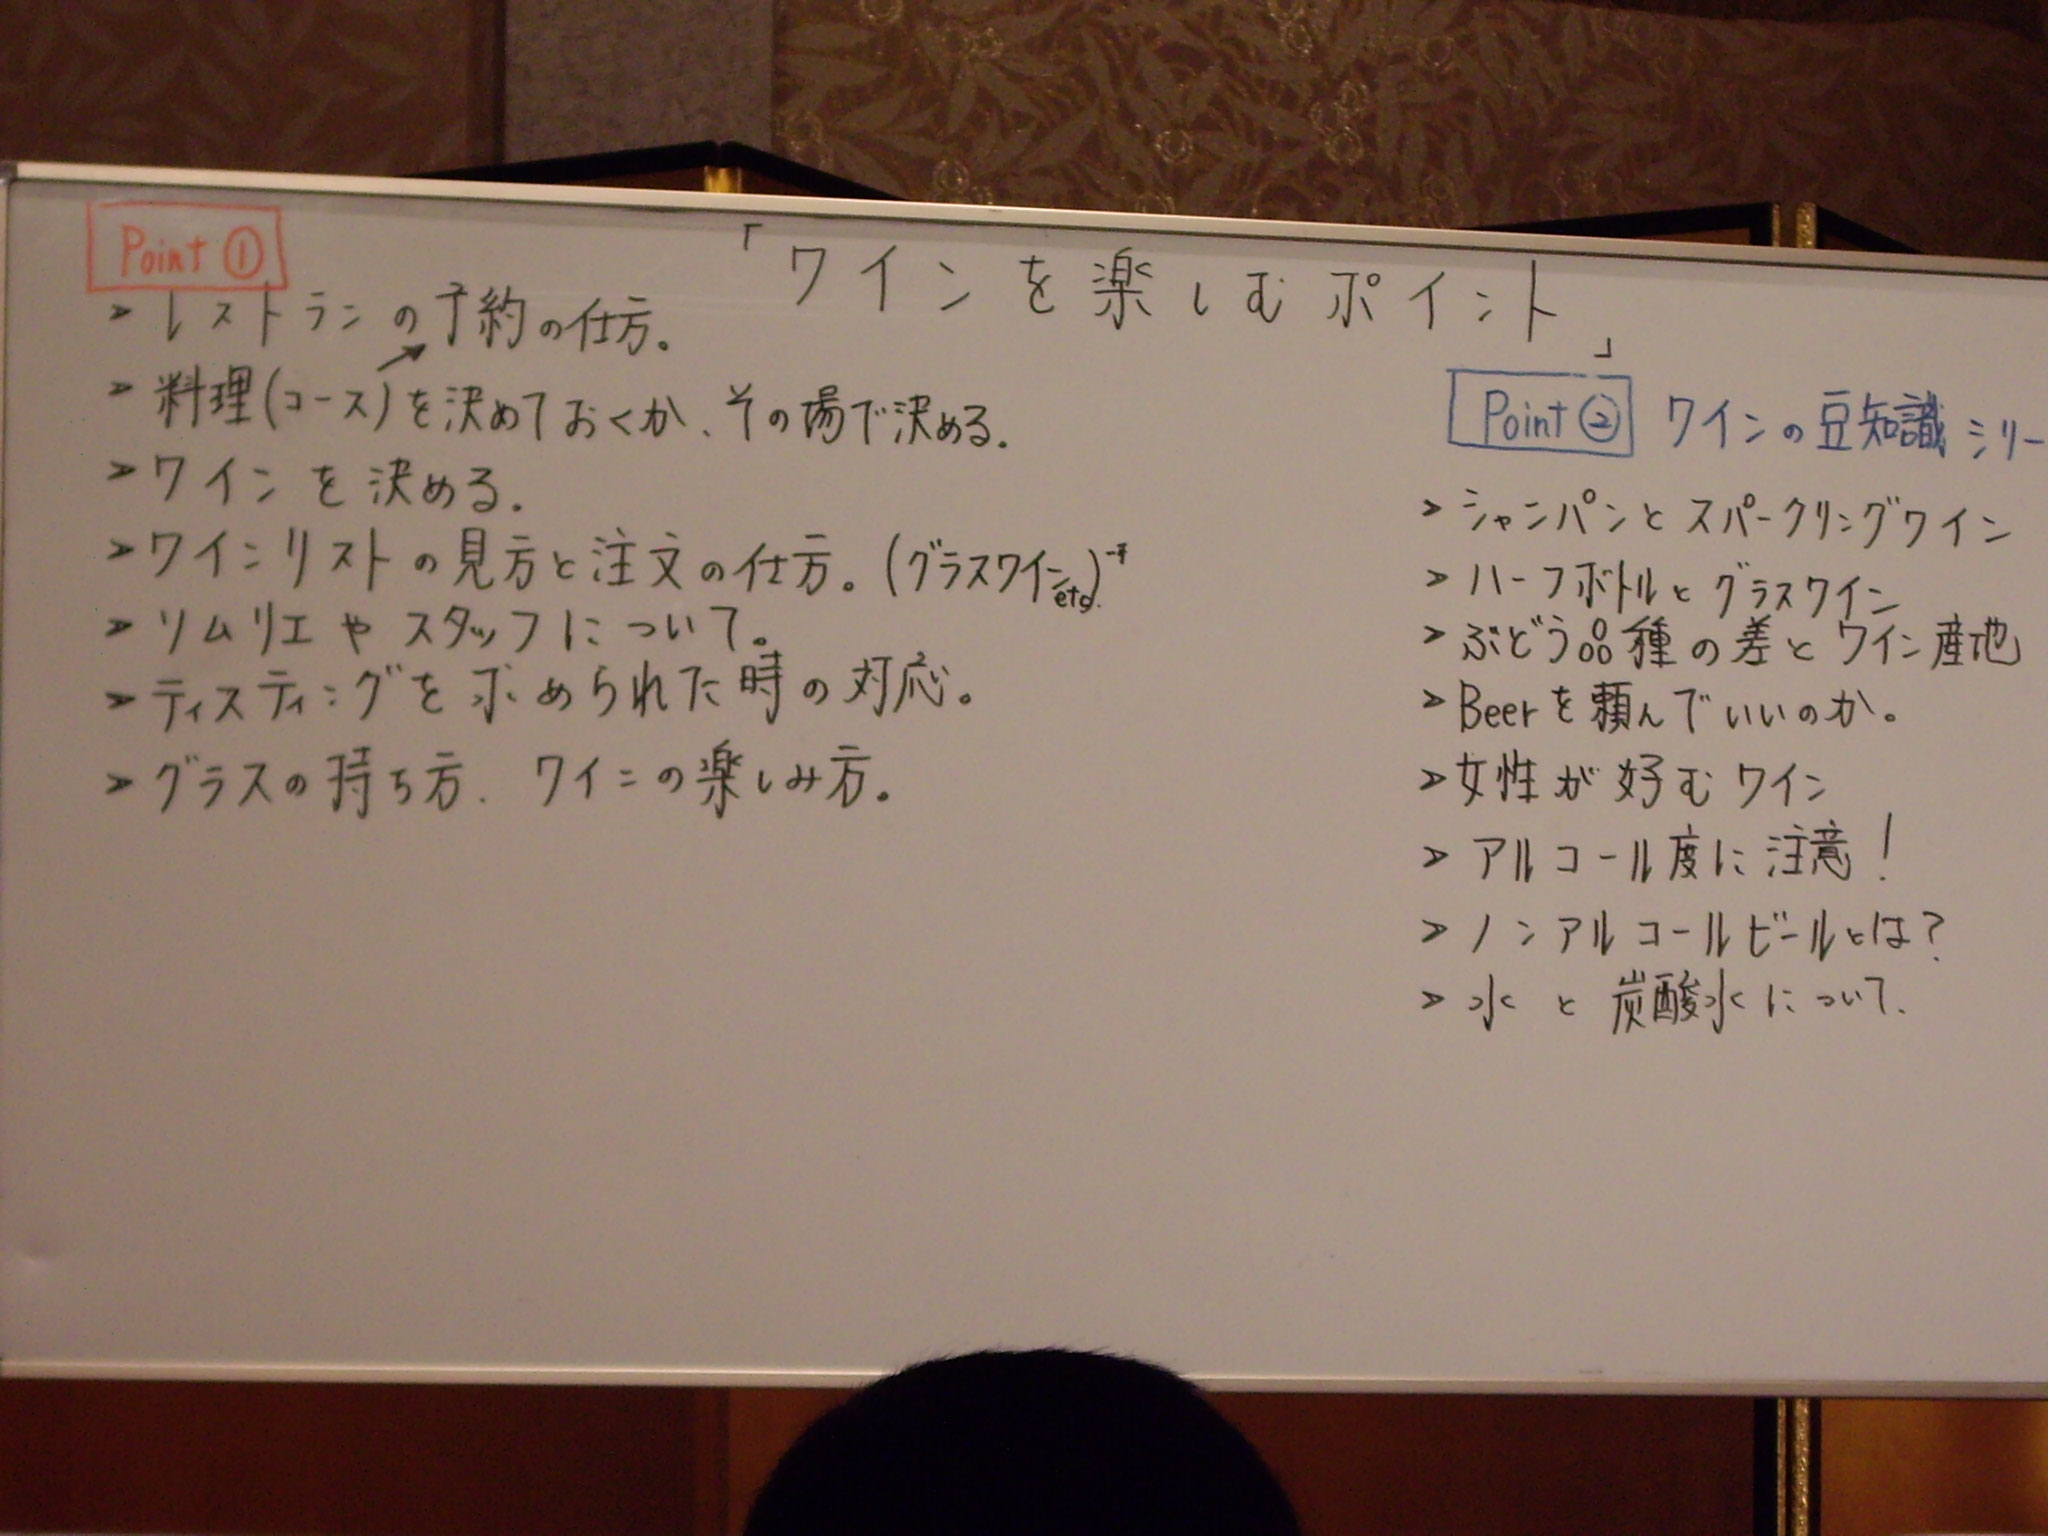 「ワインを楽しむポイント」
Point ①
➢ レストランの予約の仕方。
➢ 料理(コース)を決めておくか、その場で決める。
➢ ワインを決める。
➢ ワインリストの見方と注文の仕方。(グラスワインetc)
➢ ソムリエやスタッフについて。
➢ ティスティングを求められた時の対応。
➢ グラスの持ち方、ワインの楽しみ方。
Point ② ワインの豆知識シリー
➢ シャンパンとスパークリングワイン
➢ ハーフボトルとグラスワイン
➢ ぶどう品種の差とワイン産地
➢ Beerを頼んでいいのか。
➢ 女性が好むワイン
➢ アルコール度に注意!
➢ ノンアルコールビールとは?
➢ 水と炭酸水について.